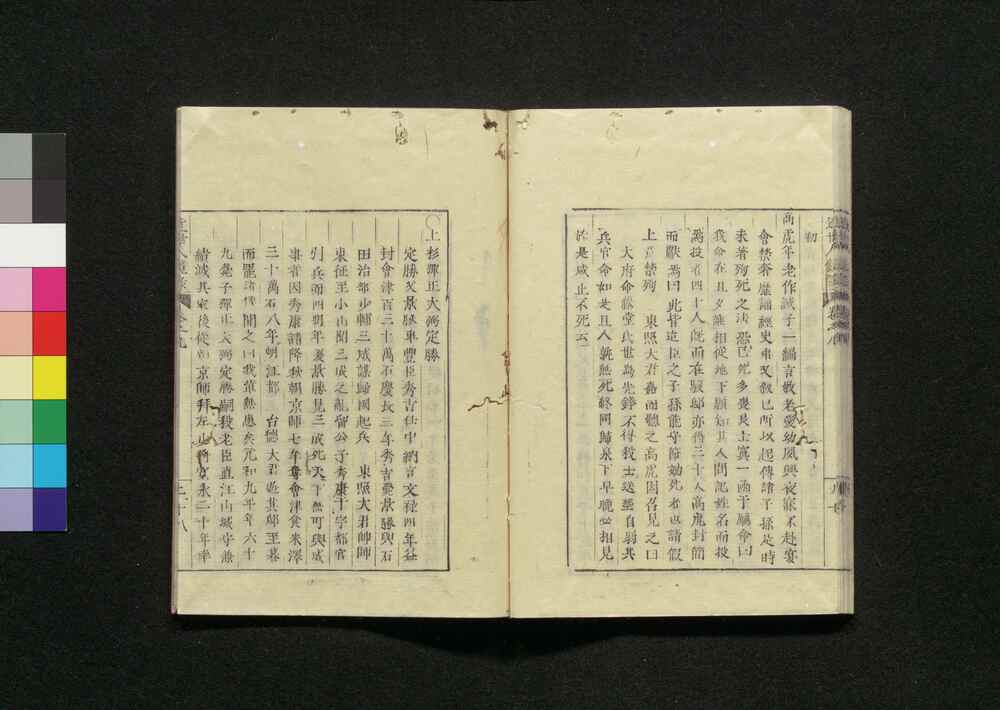 高虎年老作誡子一編言敬老愛幼夙興夜寐不赴宴
會禁奢靡誦經史弗叉叙己所以起傳諸子孫是時
未著殉死之法恐己死多喪良士寘一函于廳令曰
我命在旦夕誰相從地下願知其人問記姓名而投
焉投者四十人既而在駿邸亦得三十人高虎封簡
而獻焉曰此皆造臣之子孫能守節効死者也請假
上意禁殉 東照大君嘉而聽之高虎因召見之曰
大府命藤堂氏世為先鋒不得我士送葬自弱其
兵官命如是且人孰無死終同歸泉下早晚必相見
於是咸止不死云
○上杉彈正大弼定勝
定勝父景勝事豐臣秀吉任中納言文祿四年益
封會津百三十萬石慶長三年秀吉薨景勝與石
田治部少輔三成謀歸國起兵 東照大君帥師
東征至小山聞三成之亂留公子秀康于宇都宮
引兵而西明年景勝見三成死天下無可與成
事者因秀康請降秋朝京師七年奪會津食米澤
三十萬石八年朝江都 台德大君
而罷諸侯聞之曰我輩無患矣元和九年年六十
九薨子彈正大弼定勝嗣我老臣直江山城守兼
續滅其家後從朝京師拜左近 寬永二十年卒